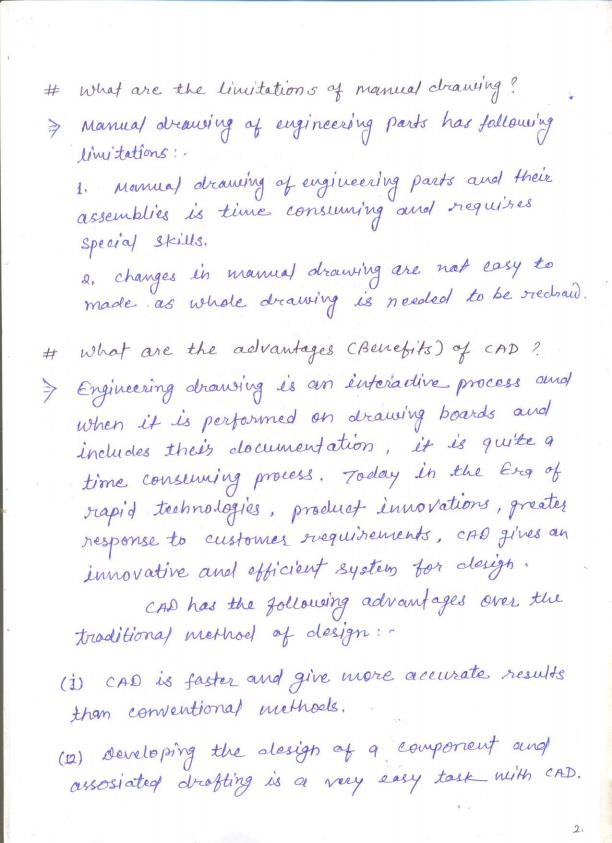 # What are the limitations of manual drawing?
⇒ Manual drawing of engineering parts has following
limitations:-
1. Manual drawing of engineering parts and their
assemblies is time consuming and requires
special skills.
2. Changes in manual drawing are not easy to
made as whole drawing is needed to be redraw.
# What are the advantages (Benefits) of CAD ?
⇒ Engineering drawing is an interactive process and
when it is performed on drawing boards and
includes their documentation, it is quite a
time consuming process. Today in the Era of
rapid technologies, product innovations, greater
response to customer requirements, CAD gives an
innovative and efficient system for design.
CAD has the following advantages over the
traditional method of design:-
(i) CAD is faster and give more accurate results
than conventional methods.
(ii) Developing the design of a component and
assosiated drafting is a very easy task with CAD.
2.